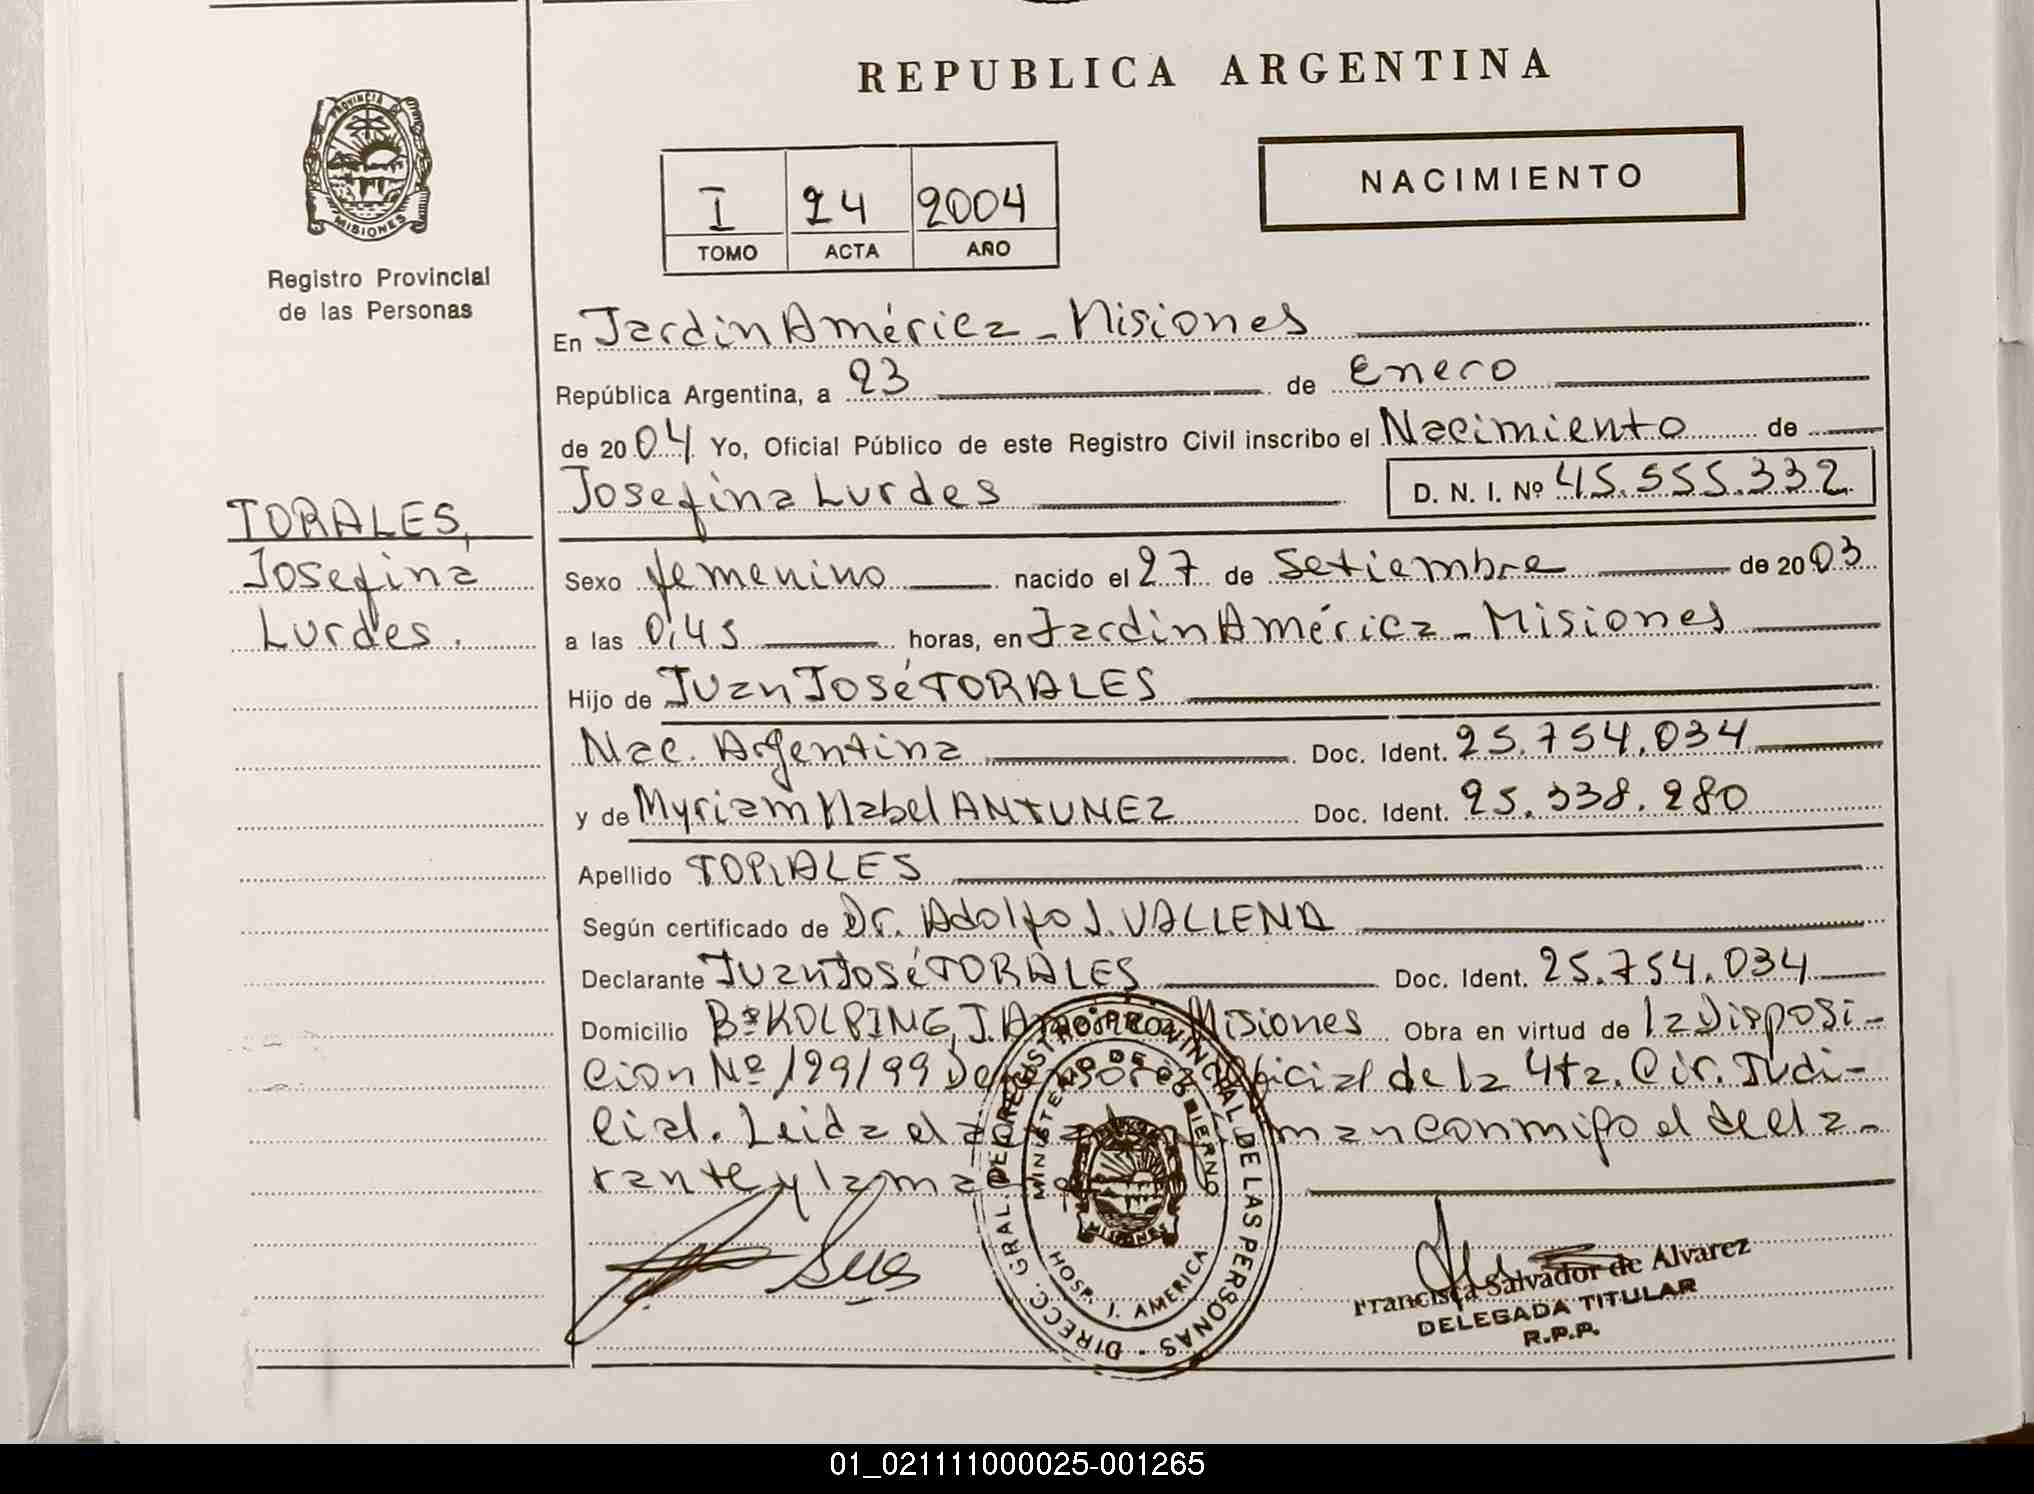 REPUBLICA ARGENTINA
PROVINCIA DE
MISIONES
Registro Provincial
de las Personas
NACIMIENTO
I 24 2004
TOMO ACTA AÑO
En Jardin América - Misiones
República Argentina, a 23 de Enero
de 2004 Yo, Oficial Público de este Registro Civil inscribo el Nacimiento de
Josefina Lurdes D. N. I. Nº 45.555.332
TORALES,
Josefina
Lurdes.
Sexo femenino nacido el 27 de Setiembre de 2003
a las 0,45 horas, en Jardin América - Misiones
Hijo de Juan José TORALES
Nac. Argentina Doc. Ident. 25.754.034
y de Myriam Mabel ANTUNEZ Doc. Ident. 25.338.280
Apellido TORALES
Según certificado de Dr. Adolfo J. VALLENA
Declarante Juan José TORALES Doc. Ident. 25.754.034
Domicilio Bº KOLPING, J. América Misiones Obra en virtud de la Disposi-
cion Nº 199/99 de la 4ta. Cir. Judi-
cial. Leida el acta firman conmigo el decla-
rante y la madre
DIRECC. GRAL. DE REGISTRO PROVINCIAL DE LAS PERSONAS
MINISTERIO DE GOBIERNO
MISIONES
HOSP. J. AMERICA
Francisca Salvador de Alvarez
DELEGADA TITULAR
R.P.P.
01_021111000025-001265